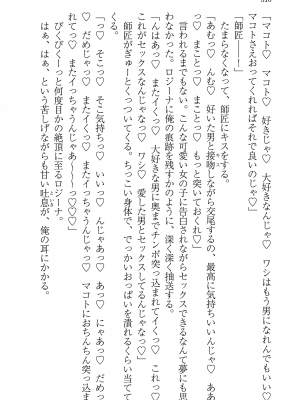 「マコト♡　マコト♡　好きじゃ♡　大好きなんじゃ♡　ワシはもう男になれんでもいい♡
マコトさえおってくれればそれで良いのじゃ♡」
「師匠ー」
たまらなくなって、師匠にキスをする。
「あむっ♡　んむっ♡　好いた男と接吻しながら交尾するの、最高に気持ちいいんじゃ♡　ああ
っ♡　まことっ♡　まことっ♡　もっと突いておくれ♡」
言われるまでもない。こんな可愛い女の子に告白されながらセックスできるなんて夢にも思
わなかった。ロジーナに俺の痕跡を残すかのように、深く深く抽送する。
「んはぁっ♡　またイくっ♡　大好きな男に奥までチンポ突っ込まれてイくっ♡　これっ♡
これがセックスなんじゃなっ♡　ワシ♡　愛した男とセックスしてるんじゃなっ♡」
師匠がぎゅーとくっついてくる。ちっこい身体で、でっかいおっぱいを潰れるくらい当てて
くる。
「っ♡　そこっ♡　そこ気持ちっ♡　いいっ♡　んじゃっ♡　あっ♡　にゃあっ♡　だめっ
♡　だめじゃっ♡　またイっちゃうんじゃっ♡　マコトにおちんちん突っ込ま
れてっ♡　またイっちゃうんじゃあ――っ♡」
びくびくーっと何度目かの絶頂に至るロジーナ。
はぁ、はぁ、という苦しげながらも甘い吐息が、俺の耳にかかる。